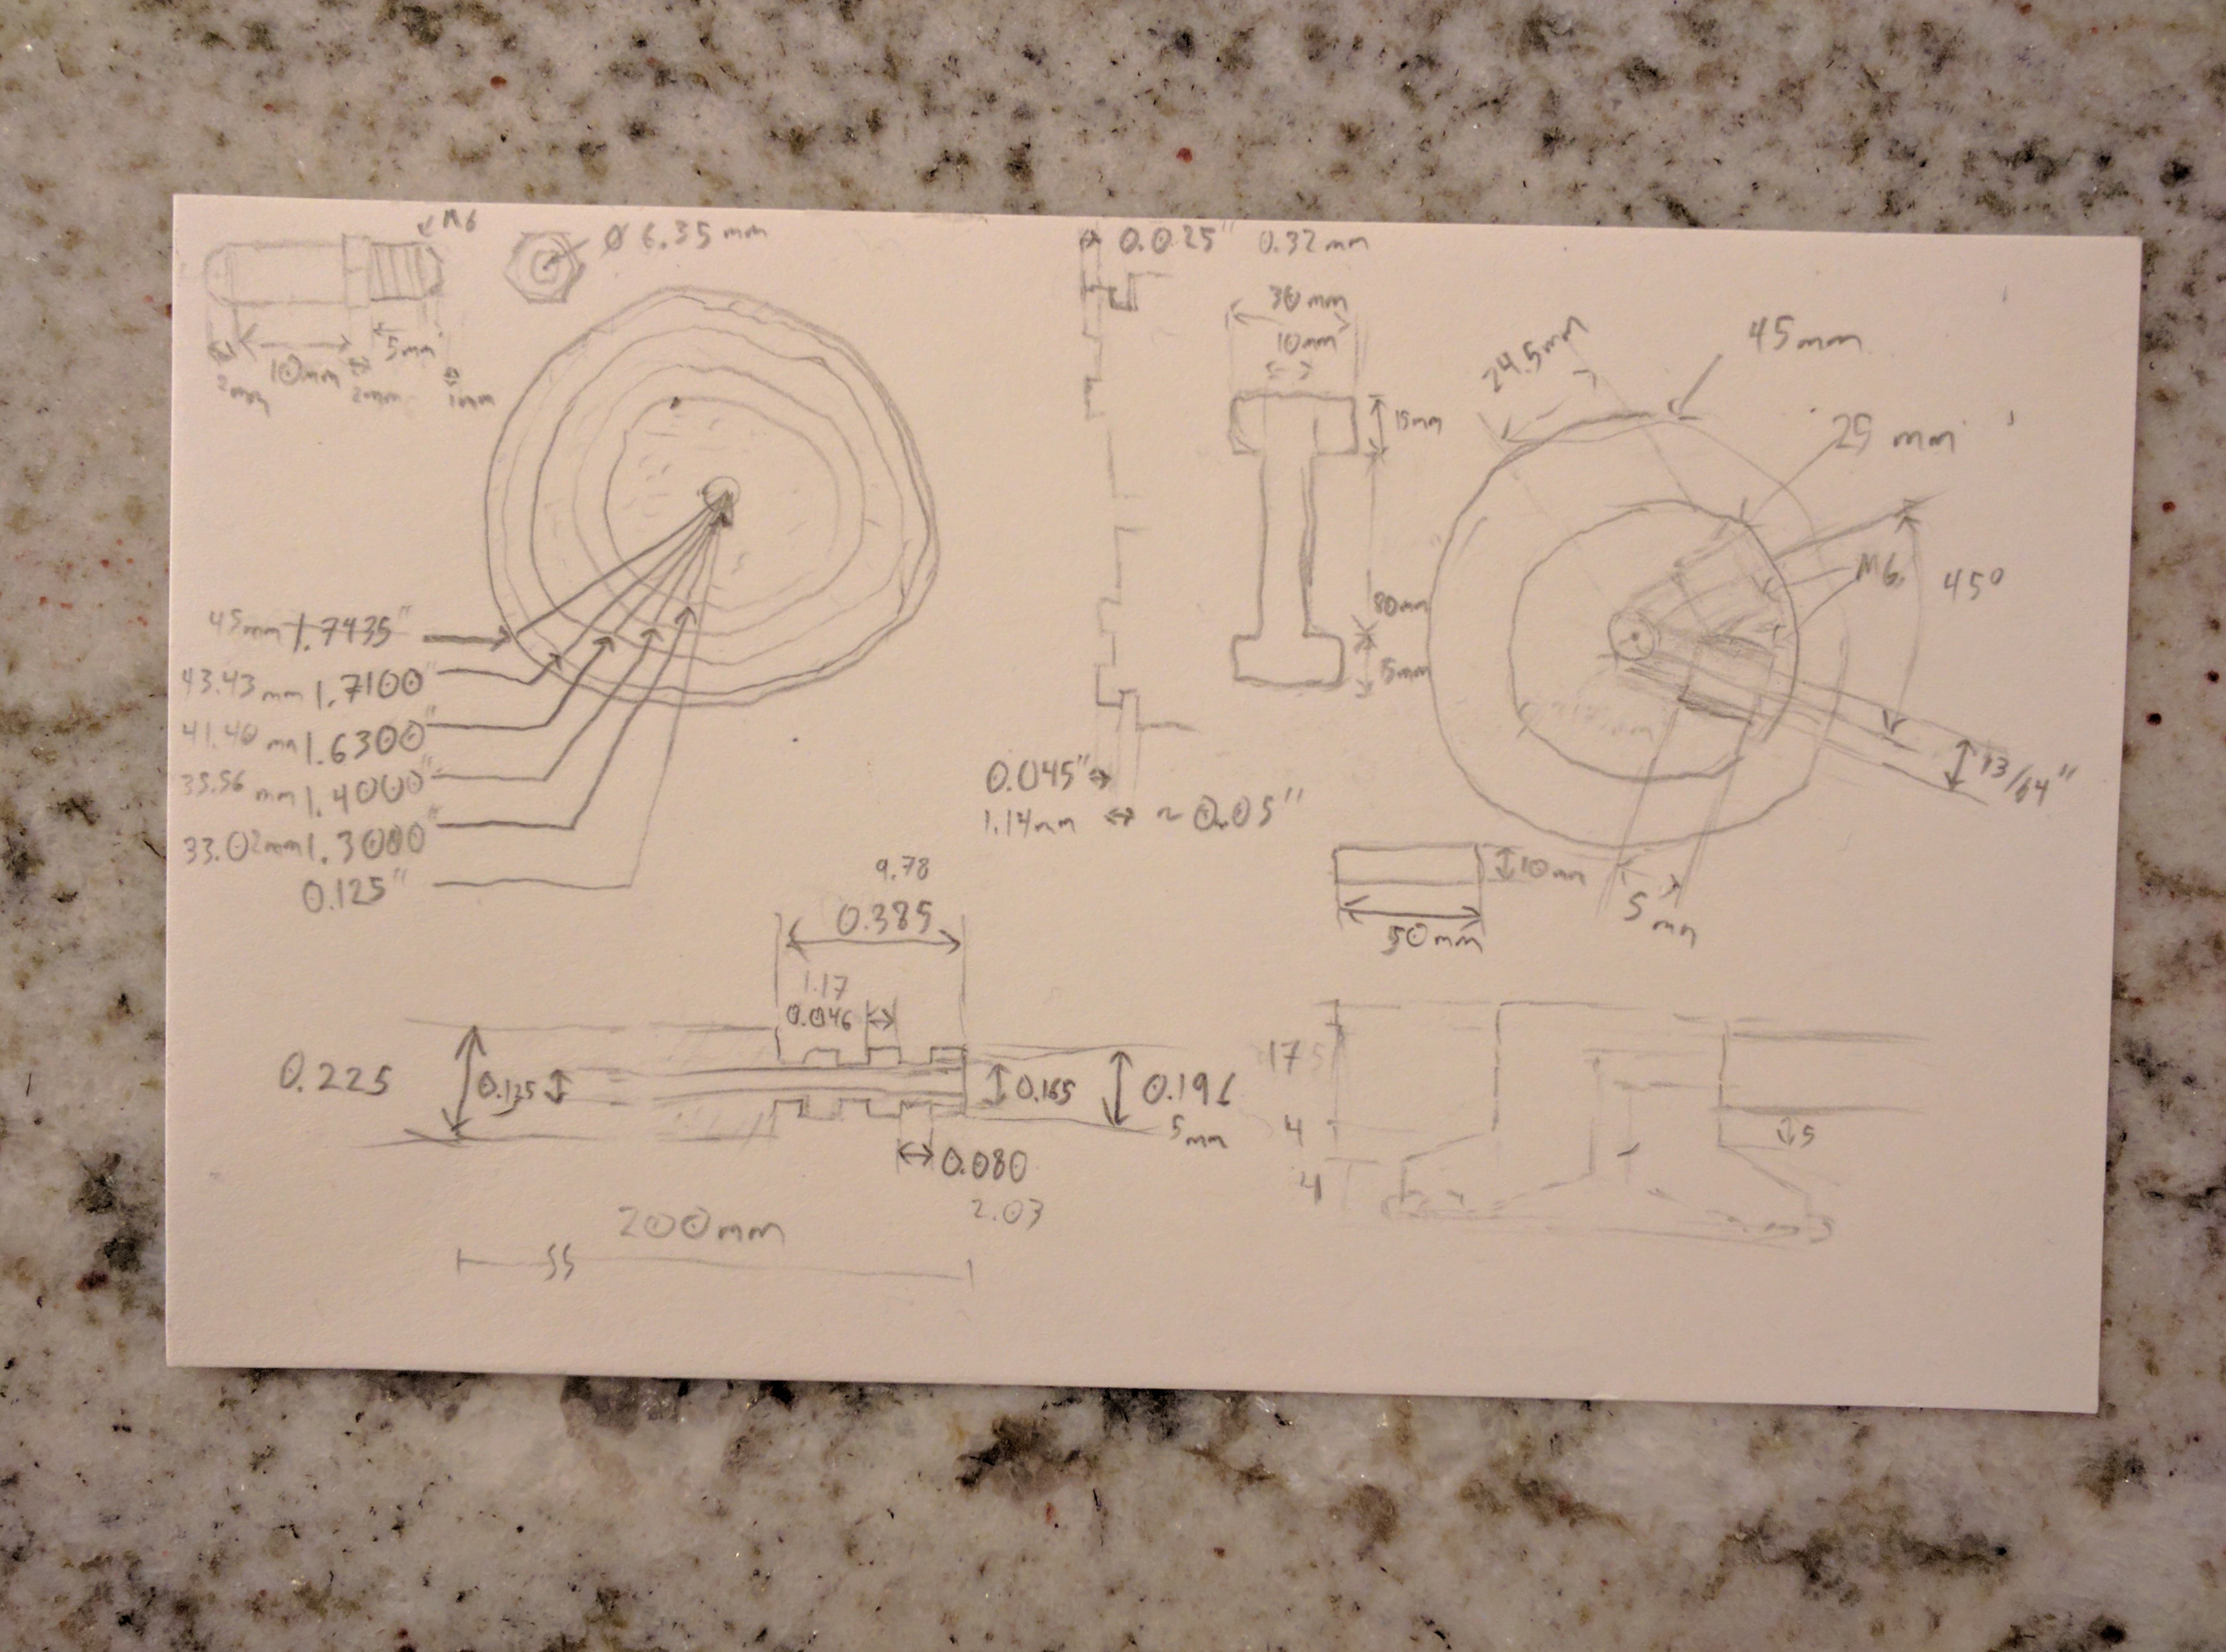 M6
Ø 6.35 mm
2mm
10mm
2mm
5mm
1mm
45mm 1.7435"
43.43 mm 1.7100"
41.40 mm 1.6300"
35.56 mm 1.4000"
33.02mm 1.3000"
0.125"
0.025" 0.32mm
30mm
10mm
15mm
80mm
15mm
0.045"
1.14mm ~0.05"
24.5mm
45mm
29 mm
M6
45°
13/64"
5mm
10mm
50mm
9.78
0.385
1.17
0.046
0.225
0.125
0.165
0.196
5mm
0.080
2.03
200mm
17.5
4
4
5